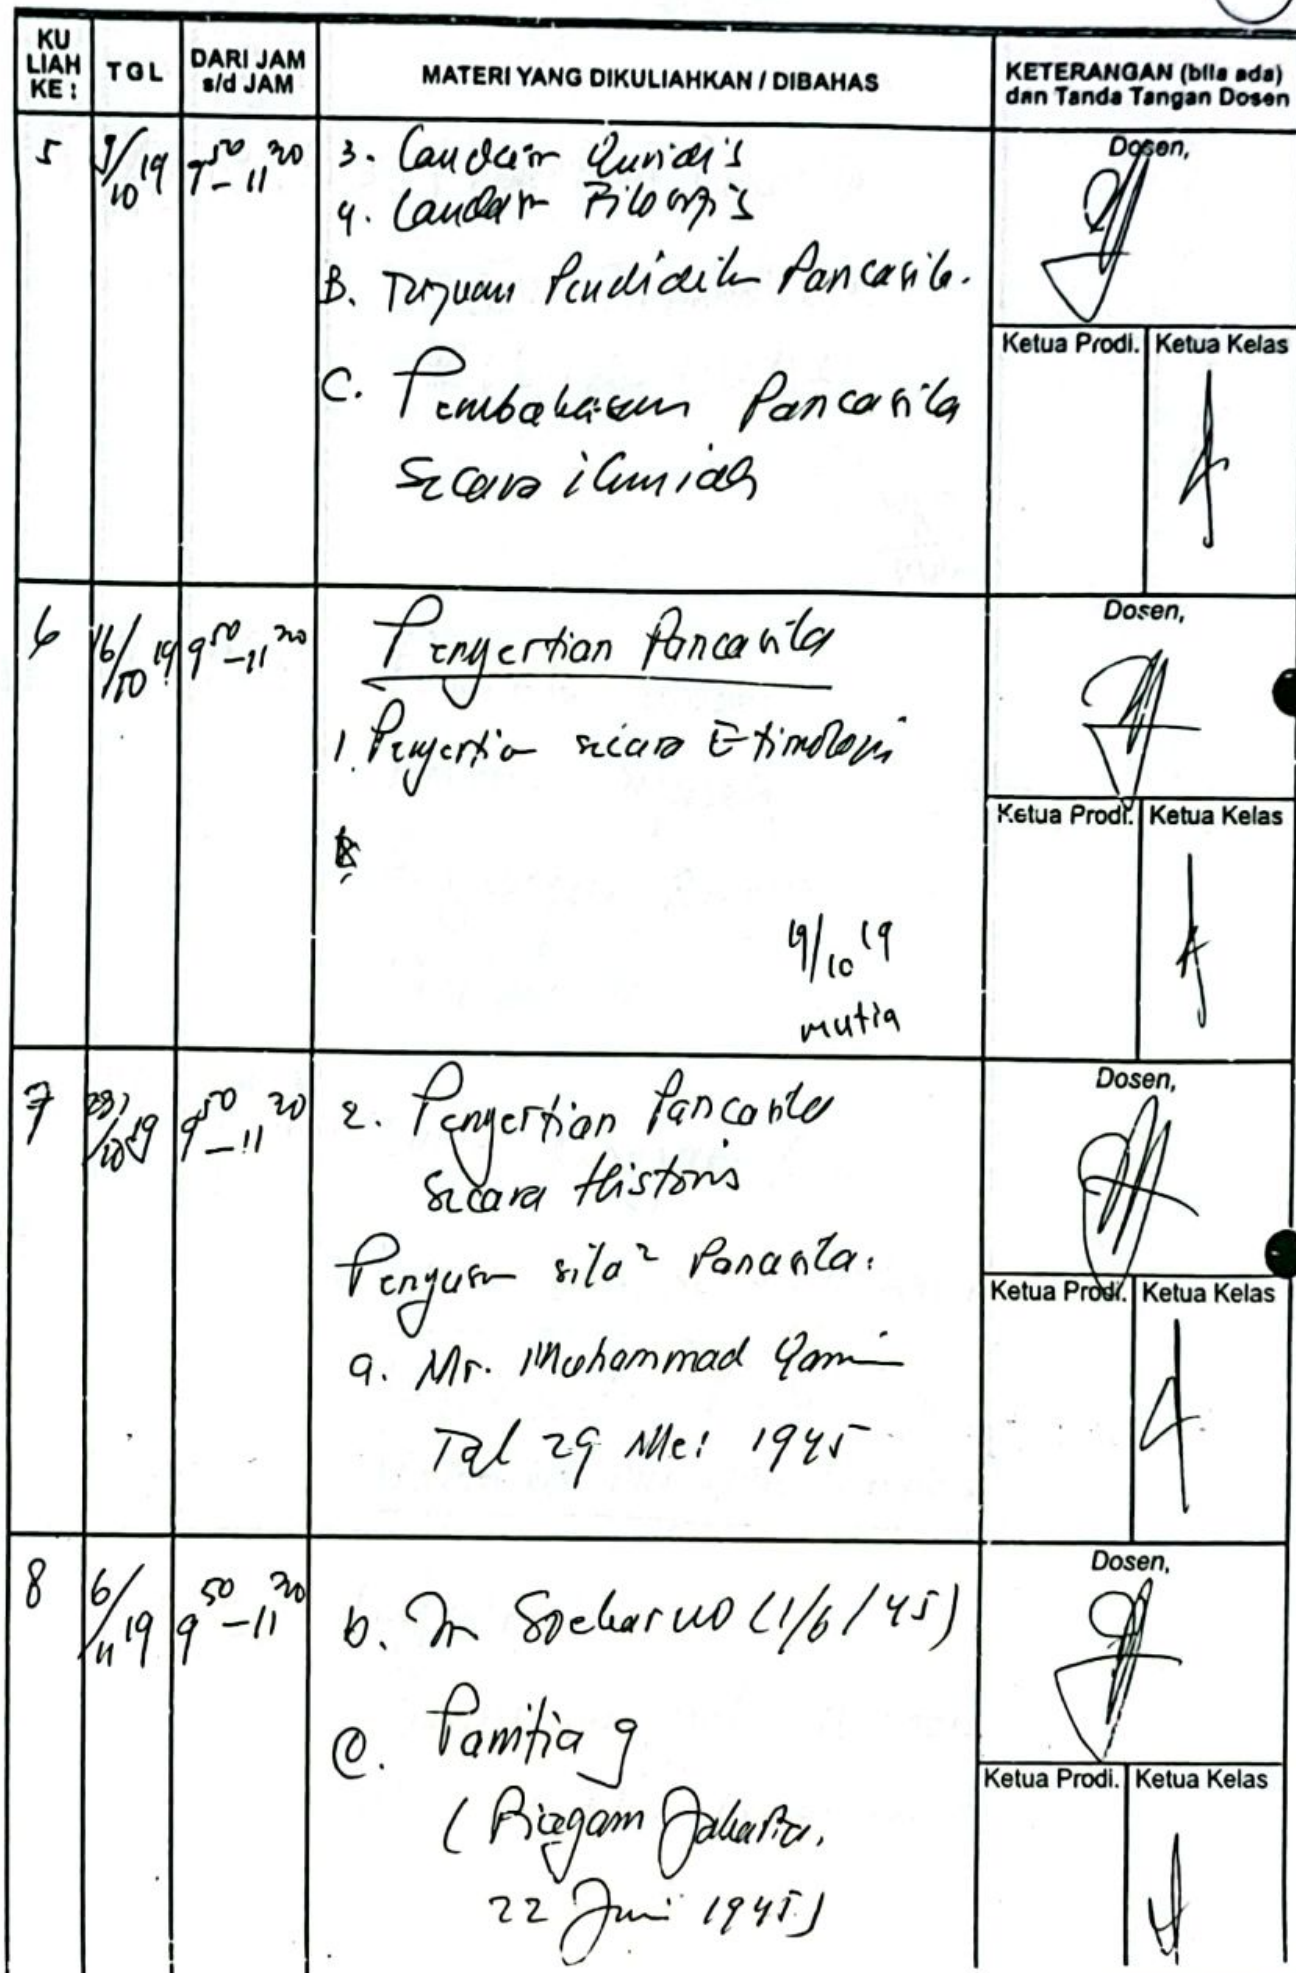 KU LIAH KE :
TGL
DARI JAM s/d JAM
MATERI YANG DIKULIAHKAN / DIBAHAS
KETERANGAN (bila ada) dan Tanda Tangan Dosen
5
9/10 19
9 50 - 11 20
3. Landasan Yuridis
4. Landasan Filosofis
B. Tujuan Pendidikan Pancasila.
C. Pembahasan Pancasila
secara ilmiah
Dosen,
Ketua Prodi. Ketua Kelas
6
16/10 19
9 50 - 11 20
Pengertian Pancasila
1. Pengertian secara Etimologi
19/10 19
mutia
Dosen,
Ketua Prodi. Ketua Kelas
7
23/10 19
9 50 - 11 20
2. Pengertian Pancasila
secara Historis
Penyusun sila² Pancasila.
a. Mr. Muhammad Yamin
Tgl 29 Mei 1945
Dosen,
Ketua Prodi. Ketua Kelas
8
6/11 19
9 50 - 11 20
b. Ir Soekarno (1/6/45)
c. Panitia 9
(Piagam Jakarta,
22 Juni 1945)
Dosen,
Ketua Prodi. Ketua Kelas